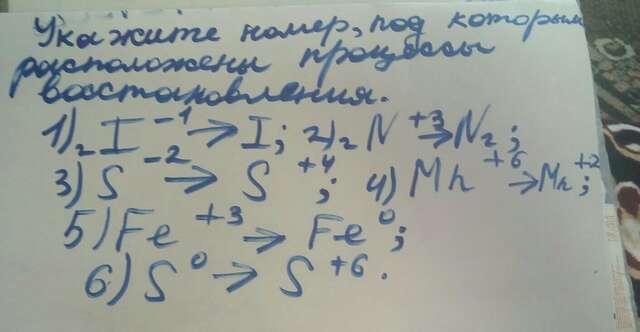 Укажите номер, под которым
расположены процессы
восстановления.
1) ₂I⁻¹ → I; 2) ₂N⁺³ → N₂;
3) S⁻² → S⁺⁴; 4) Mn⁺⁶ → Mn⁺²;
5) Fe⁺³ → Fe⁰;
6) S⁰ → S⁺⁶.